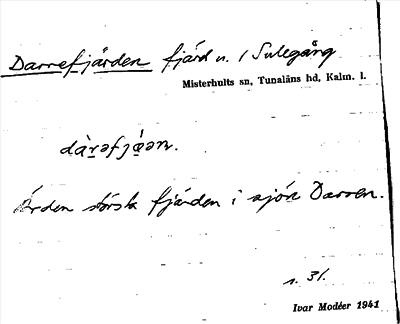 Darrefjärden fjärd n. / Sulegång
Misterhults sn, Tunaläns hd, Kalm. l.
dàrəfjä́ən.
Är den största fjärden i sjön Darren.
s. 31.
Ivar Modéer 1941